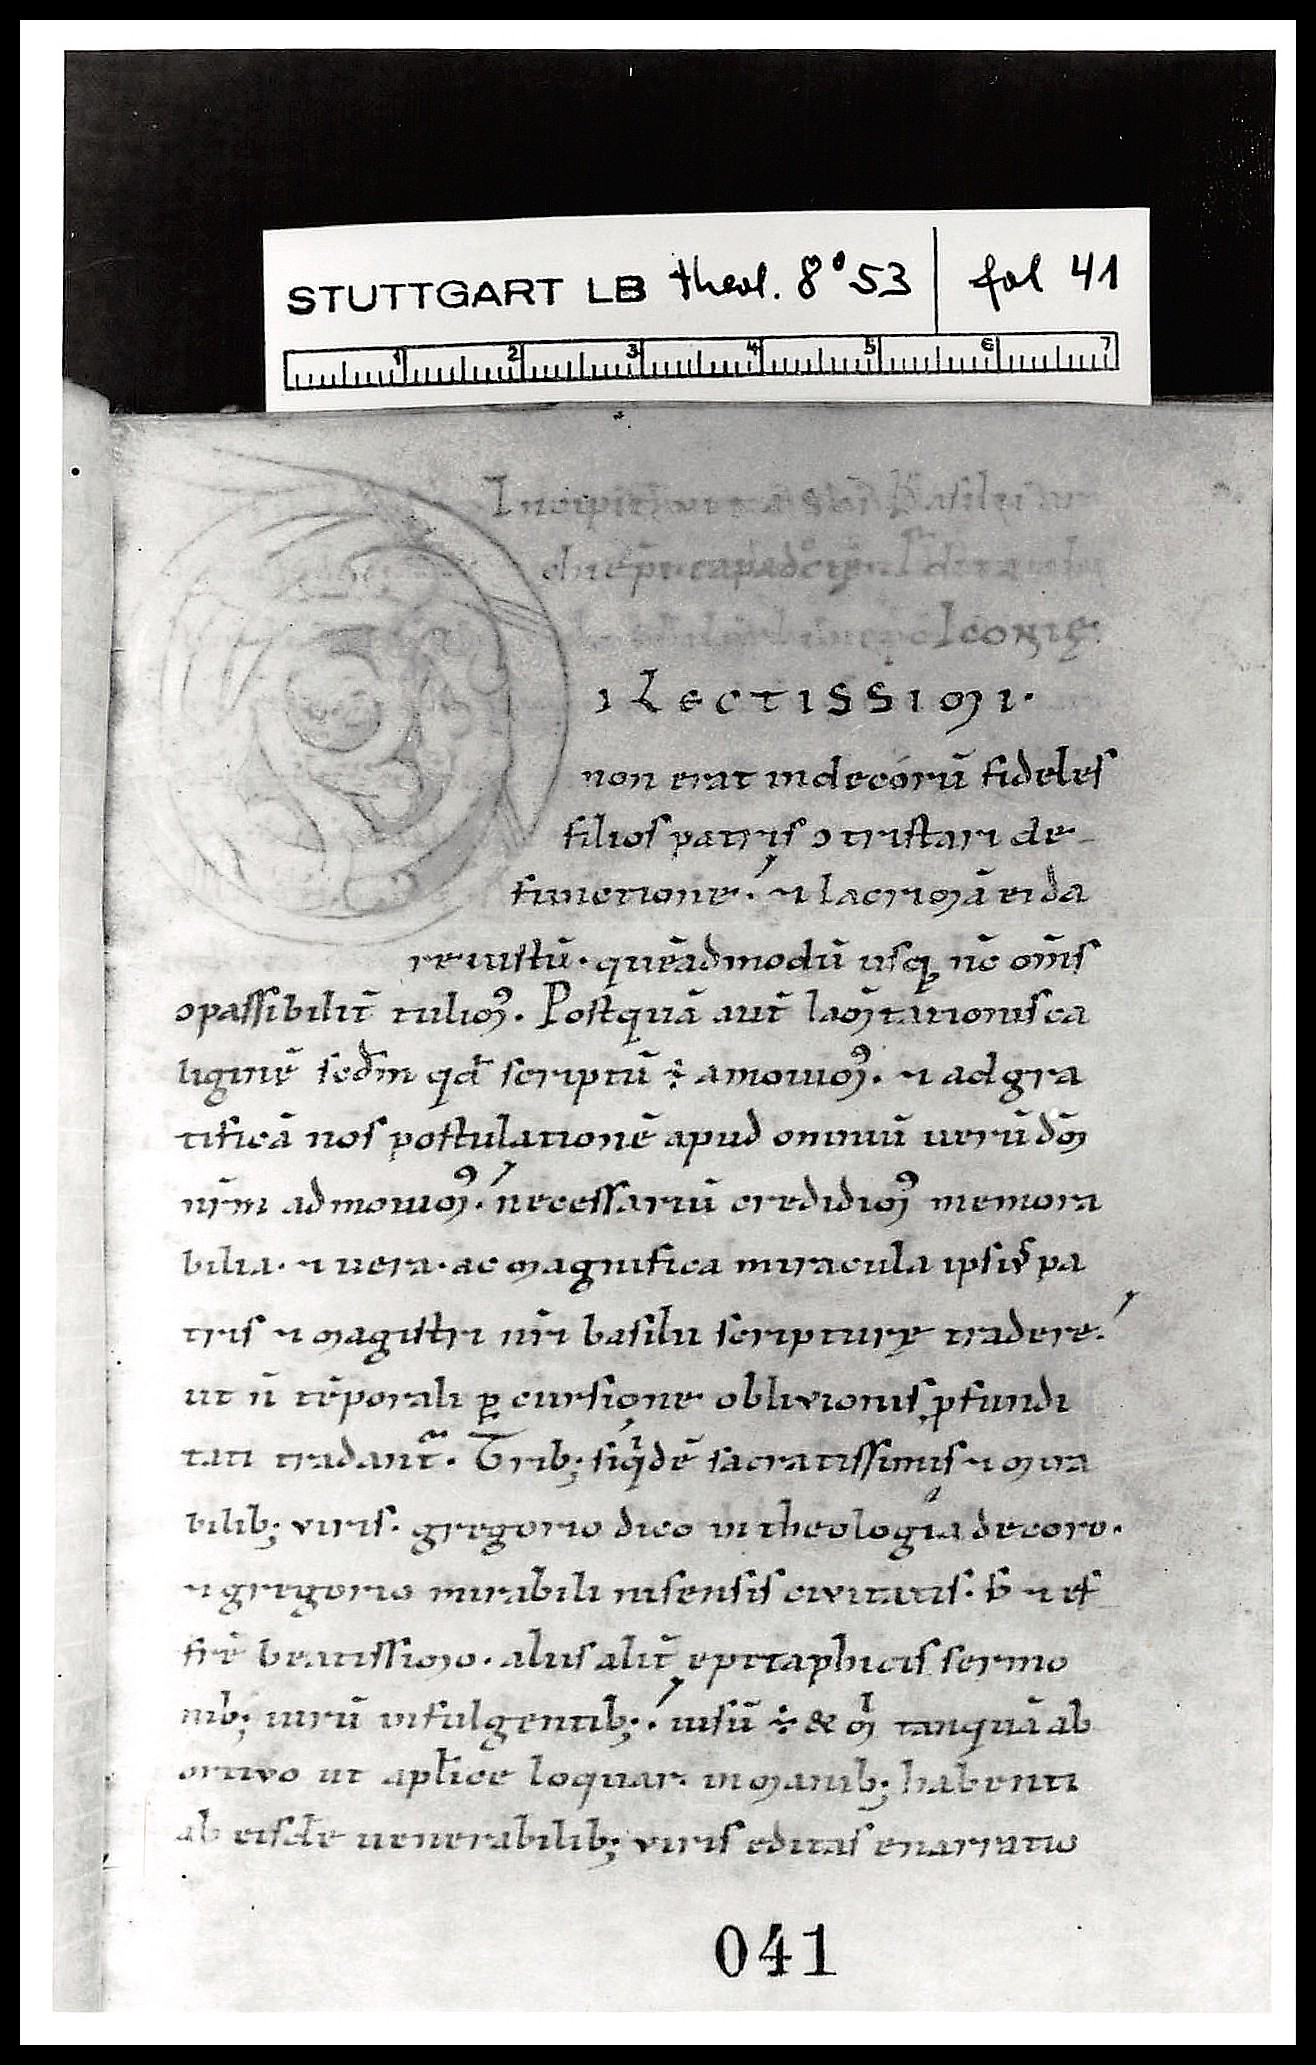 STUTTGART LB theol. 8° 53 | fol 41
1 2 3 4 5 6 7
Incipit uita sc̄i Basilii
Iconię.
ıLECTISSIMI.
non erat indecorū fideles
filios patris ɔtristari de
functione. ⁊ lacrimā ei da
re iustū. quēadmodū usq; nc̄ om̄s
ɔpassibilit̄ tulim᷒. Postquā aut̄ lam̄tationis ca
liginē scd̄m qd̄ scriptū ÷ amouim᷒. ⁊ ad gra
tificā nos postulationē apud omniū uerū dm̄
nr̄m admouim᷒. necessariū credidim᷒ memora
bilia. ⁊ uera. ac magnifica miracula ipsiꝰ pa
tris ⁊ magistri nr̄i basilii scripturę tradere.
ut n̄ tēporali ꝑcursione obliuionis ꝓfundi
tati tradant᷑. Trib; siqͥdē sacratissimis ⁊ mira
bilib; viris. gregorio dico in theologia decoro.
⁊ gregorio mirabili nisensis civitatis. ⁊
fr̄e beatissimo. aliis alit̄ epitaphicis sermo
nib; uirū infulgentib;. uisū ÷ & mͥ tanquā ab
ortivo ut aplīce loquar. in manib; habenti
ab eisdē uenerabilib; viris editas enarratio
041